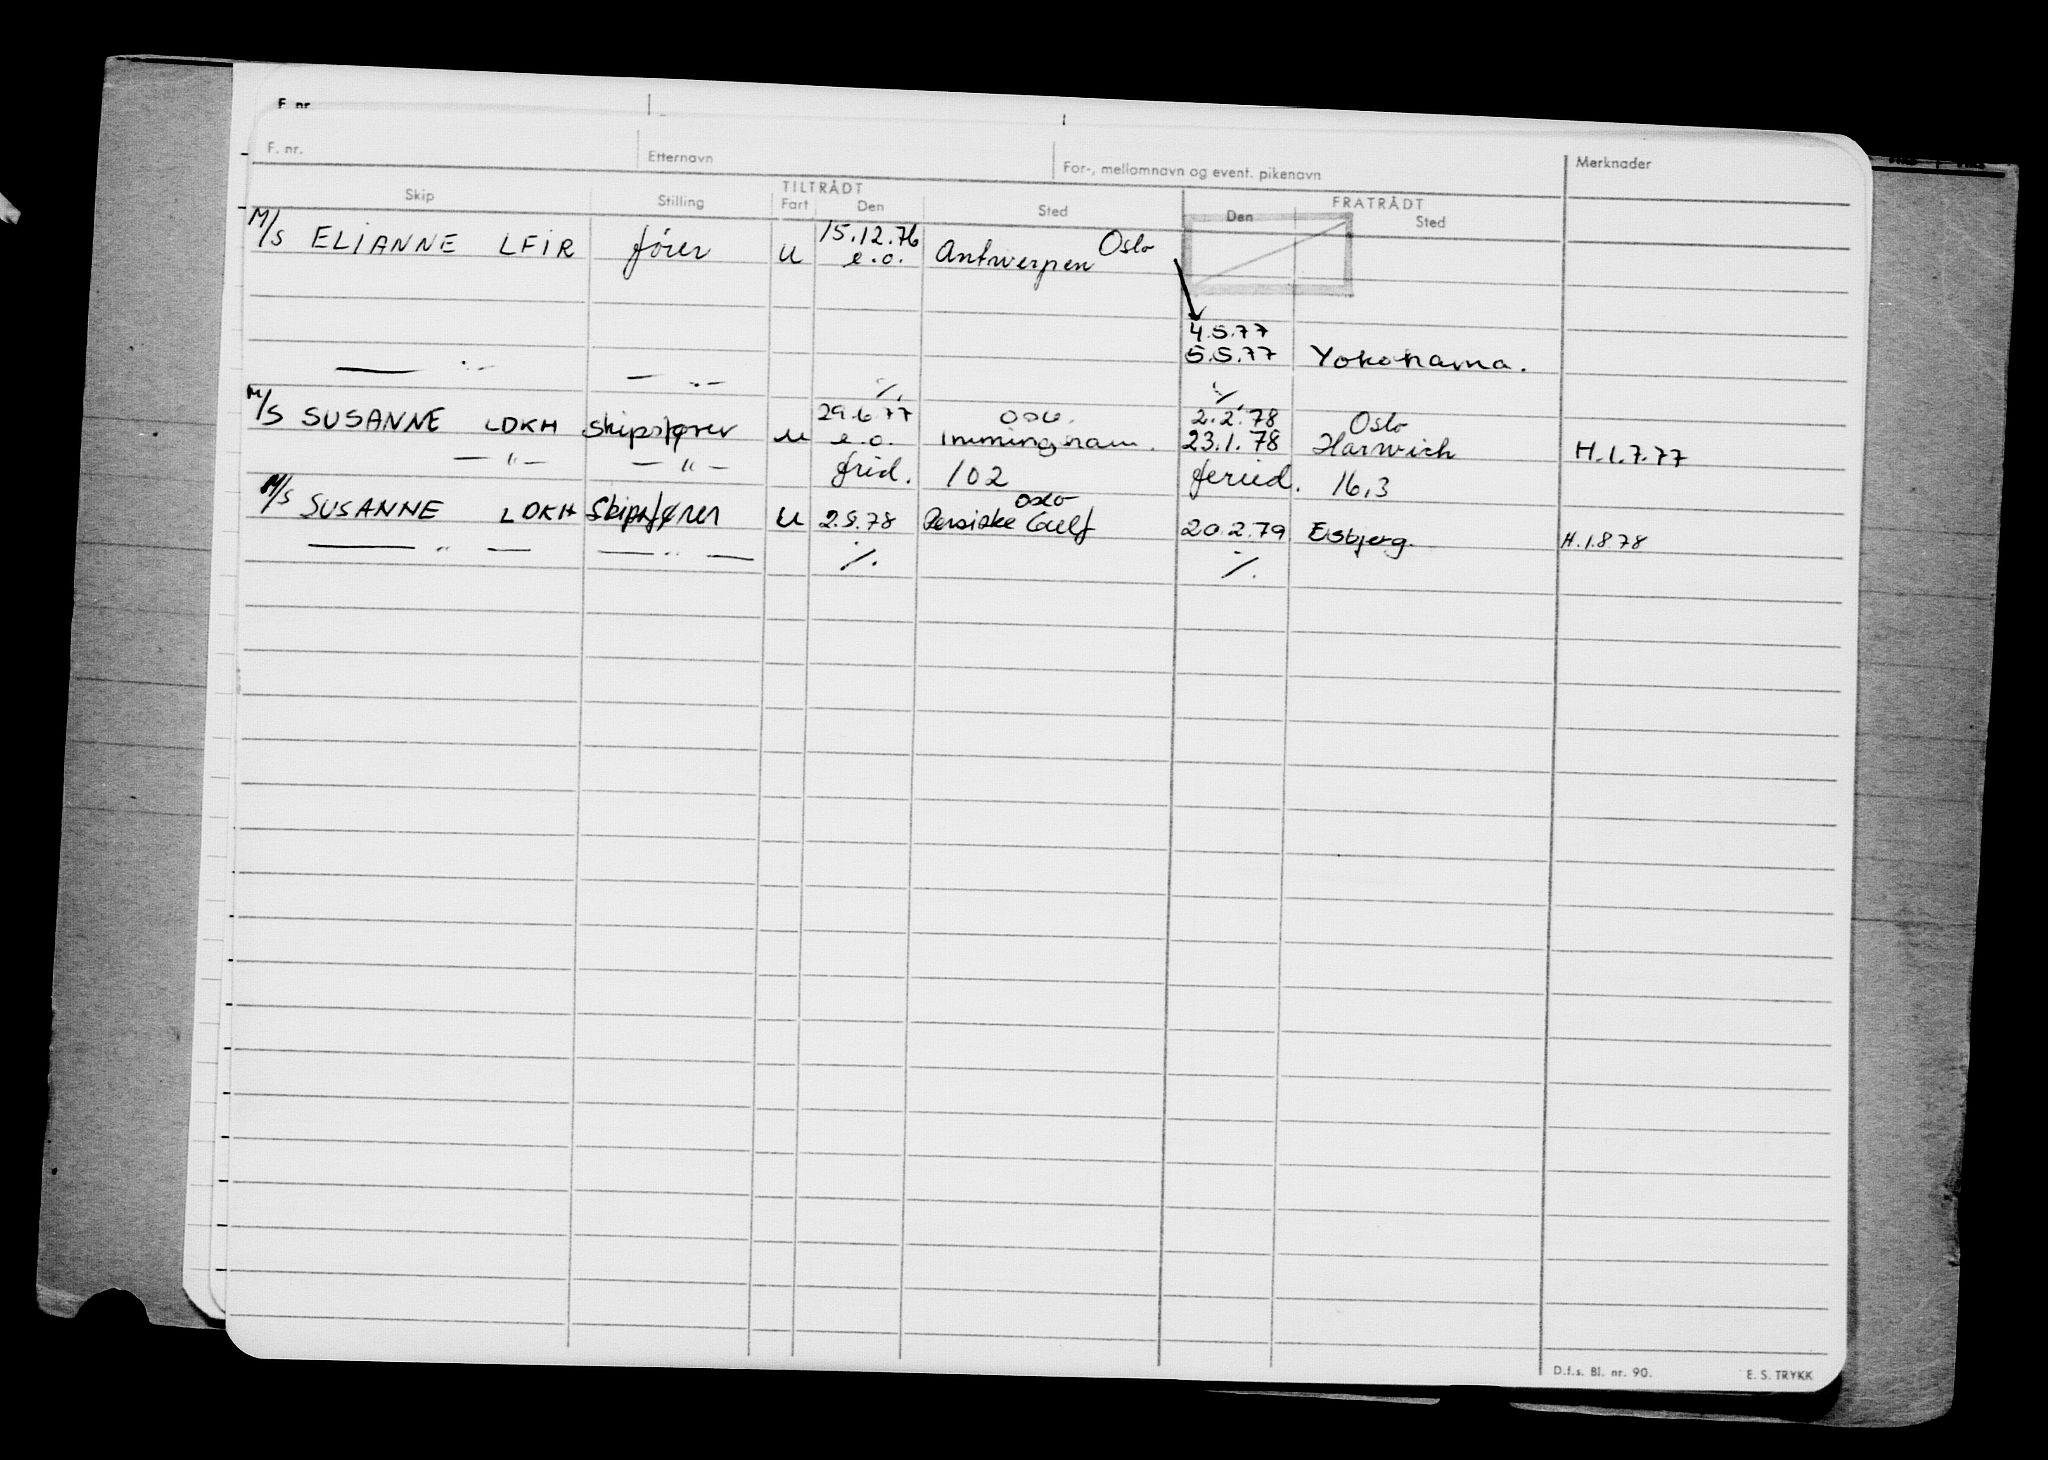 F. nr.
F. nr. Etternavn For-, mellomnavn og event. pikenavn Merknader
TILTRÅDT FRATRÅDT
Skip Stilling Fart Den Sted Den Sted
M/S ELIANNE LFIR fører U 15.12.76 Oslo
e.o. Antwerpen
4.5.77
5.5.77 Yokohama.
— " — — " — ·/. ·/.
M/S SUSANNE LDKH Skipsfører u 29.6.77 Oslo. 2.2.78 Oslo
e.o. Immingham. 23.1.78 Harwich H.1.7.77
— " — — " — frid. 102 feried. 16,3
M/S SUSANNE LDKH Skipsfører U 2.8.78 Oslo Persiske Gulf 20.2.79 Esbjerg. H.1.8.78
— " — — " — ·/. ·/.
D.f.s. Bl. nr. 90. E. S. TRYKK